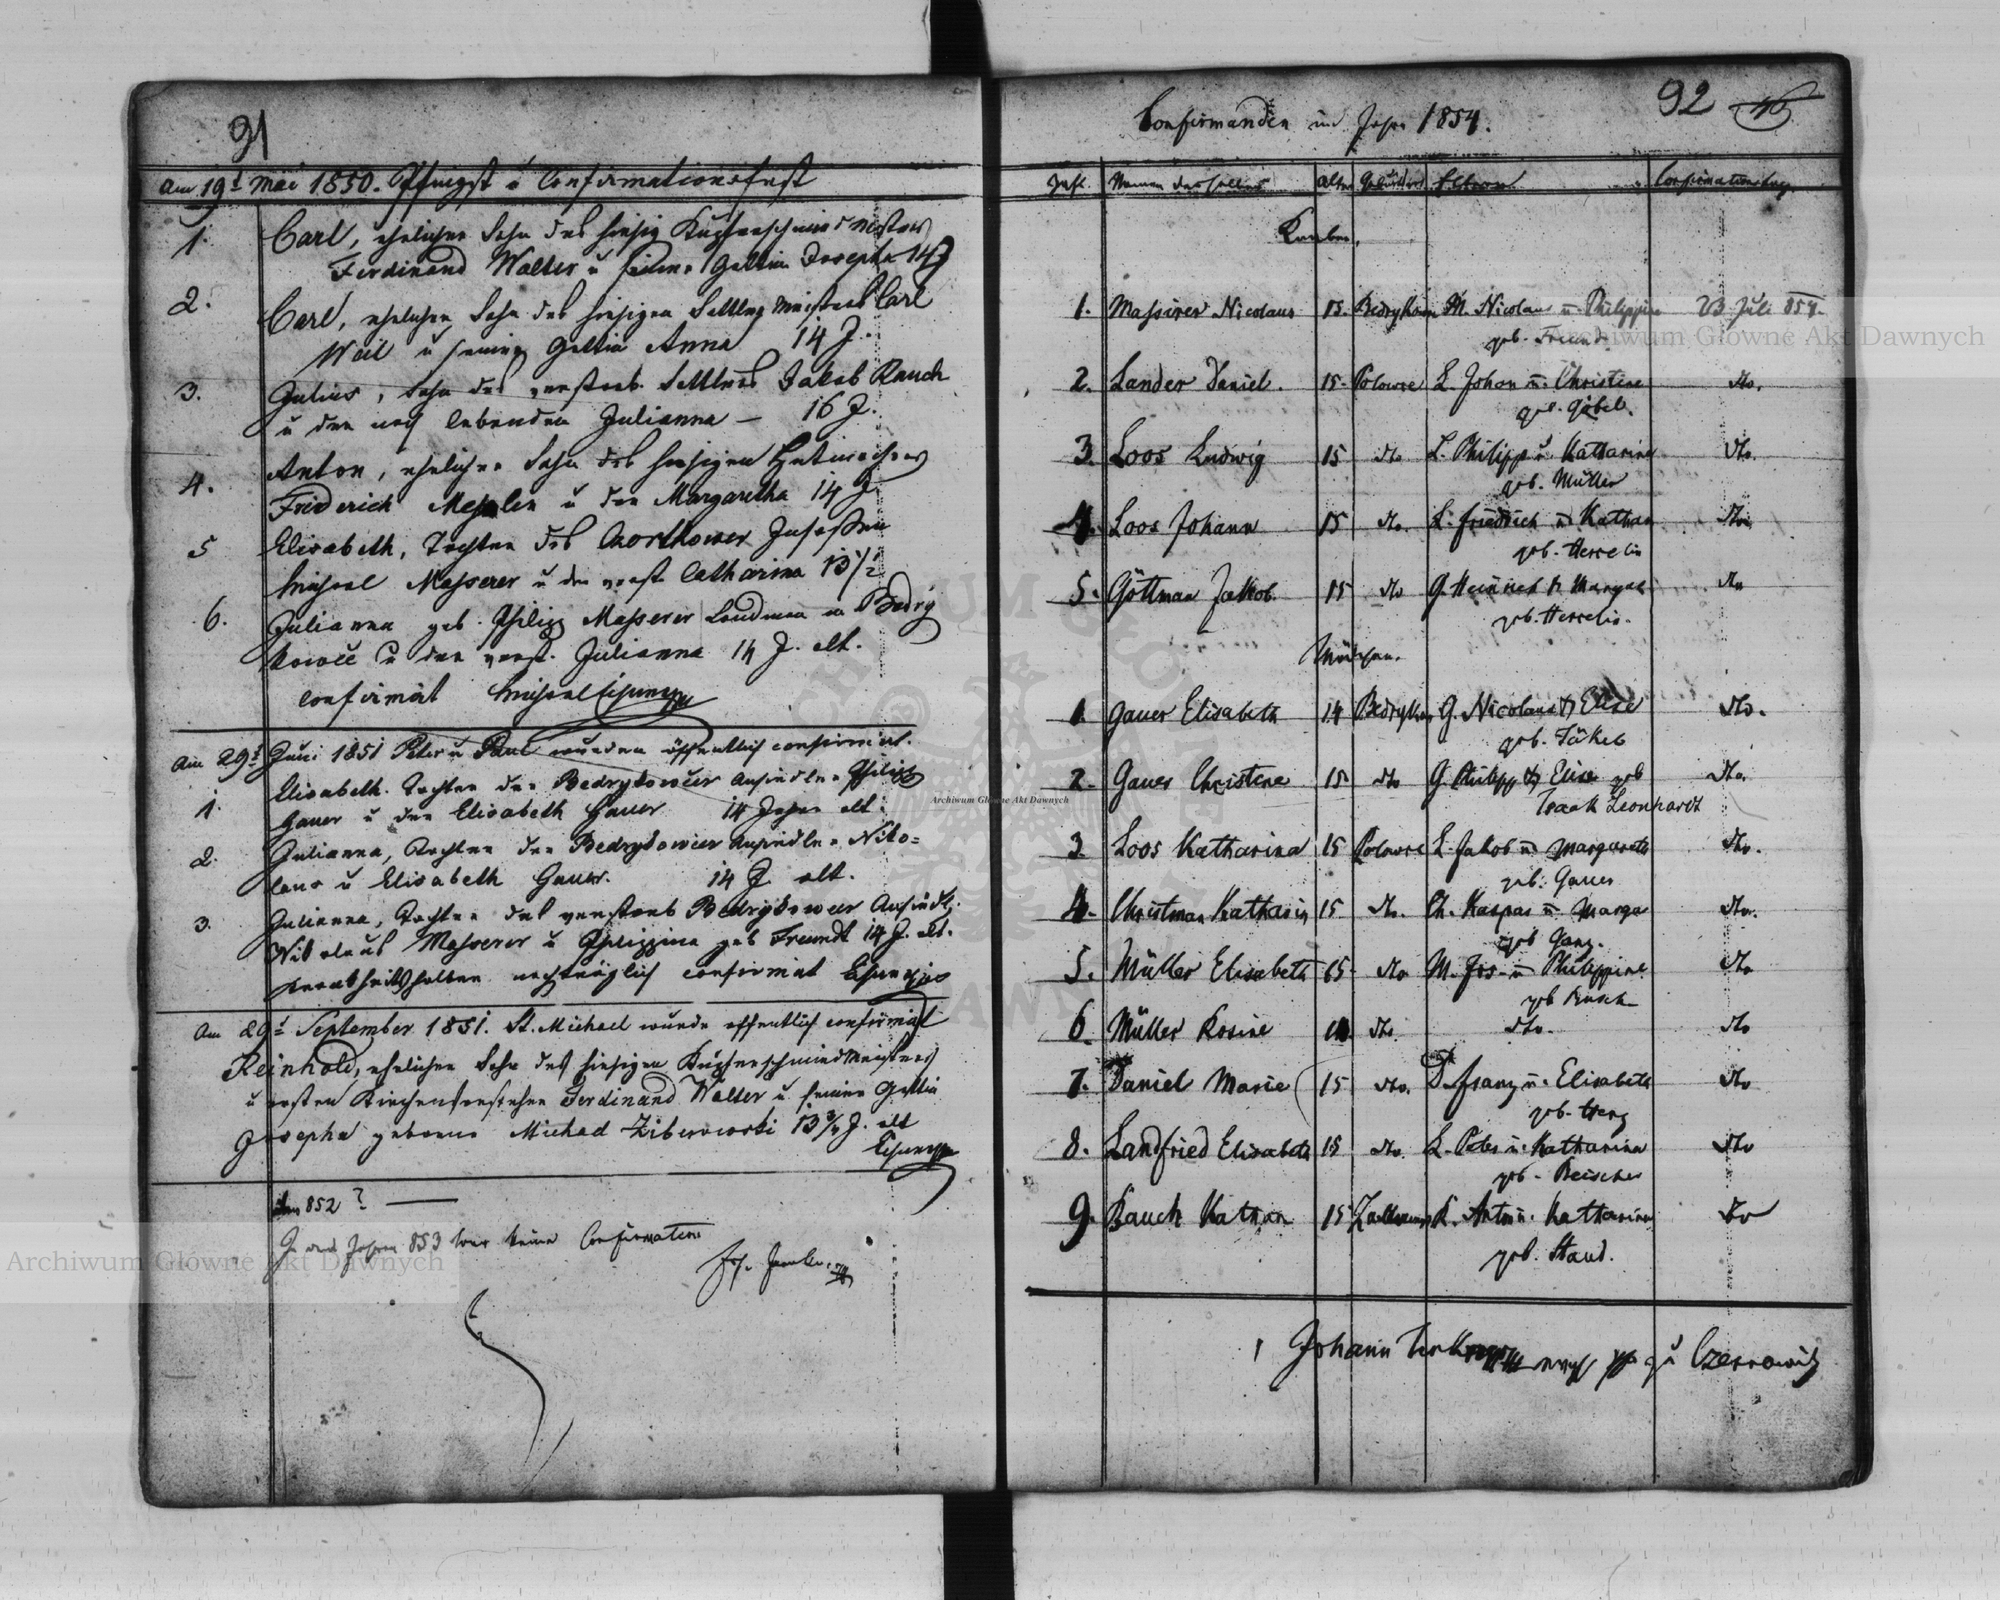 91
Am 19t Mai 1850. Pfingst u Confirmationsfest
1. Carl, ehelicher Sohn des hiesig Kupferschmied Meisters
Ferdinand Walter u seiner Gattin Josepha 14 J
2. Carl, ehelicher Sohn des hiesigen Sattler Meisters Carl
Weil u seiner Gattin Anna 14 J.
3. Julius, Sohn des verstorb. Sattlers Jakob Rauch
u der noch lebenden Julianna — 16 J.
4. Anton, ehelicher Sohn des hiesigen Hutmachers
Friderich u der Margaretha 14 J.
5 Elisabeth, Tochter des Insassen
Michael Masserer u der verst Catharina 13 1/2
6. Julianna geb. Philipp Masserer Landman in Bedry
kowce u der verst. Julianna 14 J. alt.
confirmirt Michael
Am 29t Juni 1851 Peter u Paul wurden öffentlich confirmirt.
1. Elisabeth. Tochter der Bedrykowcer Ansiedler Philipp
Gauer u der Elisabeth Gauer 14 Jahre alt.
2. Julianna, Tochter der Bedrykowcer Ansiedler Niko=
laus u Elisabeth Gauer. 14 J. alt.
3. Julianna, Tochter des verstorb Bedrykowcer Ansiedl.
Nikolaus Masserer u Philippina geb Freundt 14 J. alt.
krankheitshalber nachträglich confirmirt
Am 29t September 1851. St. Michael wurde öffentlich confirmirt
Reinhold, ehelicher Sohn des hiesigen Kupferschmied Meisters
u ersten Kirchenvorsteher Ferdinand Walter u seiner Gattin
Josepha geborne Michad 13 3/4 J. alt
852?
In den Jahren 853 war keine Confirmation
92 46
Confirmanden im Jahre 1854.
Zahl. Namen derselben Alter Geburtsort Eltern Confirmationstag.
Knaben.
1. Massirer Nicolaus 15. M. Nicolaus u. Philippine 23 Juli 854.
geb. Freund
2. Lander Daniel. 15. Polowce L. Johan u. Christine dto.
geb. Göbel.
3. Loos Ludwig 15 dto L. Philipp u Katharine dto.
geb. Müller
4. Loos Johann 15 dto. L. Friedrich u Kathar dto.
geb. Hesselis
5. Göttman Jakob. 15 dto G. Heinrich u Margar dto
geb. Hesselis.
Mädchen.
1. Gauer Elisabeth 14 G. Nicolaus u Elise dto.
geb. Jäkel
2. Gauer Christine 15 dto G Philipp u Elise geb dto.
Isaak Leonhardt
3 Loos Katharina 15 Polowce L. Jakob u Margareth dto.
geb. Gauer
4. Christman Katharin 15 dto. Ch. Kaspar u. Marga dto.
geb Ganz.
5. Müller Elisabeth 15 dto M. Jos. u Philippine dto
geb Busch
6. Müller Rosine dto. dto. dto
7. Daniel Marie 15 dto. D. Franz u. Elisabeth dto
geb. Herz
8. Landfried Elisabeth 15 dto. L. Peter u. Katharina dto
geb. Reischer
9. Rauch Kathar 15 R. Anton u. Katharina dto
geb. Staud.
Johann zu Czernowitz
Archiwum Główne Akt Dawnych
Archiwum Główne Akt Dawnych
Archiwum Główne Akt Dawnych